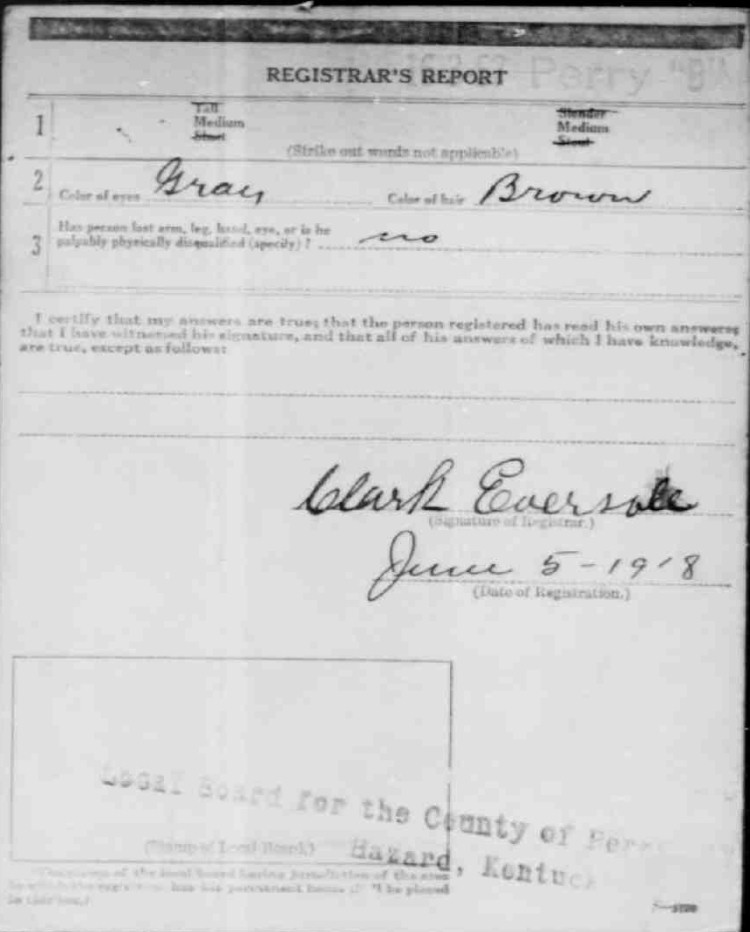 Perry "B"
REGISTRAR'S REPORT
1 Tall Slender
Medium Medium
Short Stout
(Strike out words not applicable)
2 Color of eyes Gray Color of hair Brown
3 Has person lost arm, leg, hand, eye, or is he
palpably physically disqualified (specify)? no
I certify that my answers are true; that the person registered has read his own answers;
that I have witnessed his signature, and that all of his answers of which I have knowledge,
are true, except as follows:
Clark Eversole
(Signature of Registrar.)
June 5-1918
(Date of Registration.)
Local Board for the County of Perr
(Stamp of Local Board.)
Hazard, Kentuc
of the local board having jurisdiction of the area
has his permanent home be placed
in this box.)